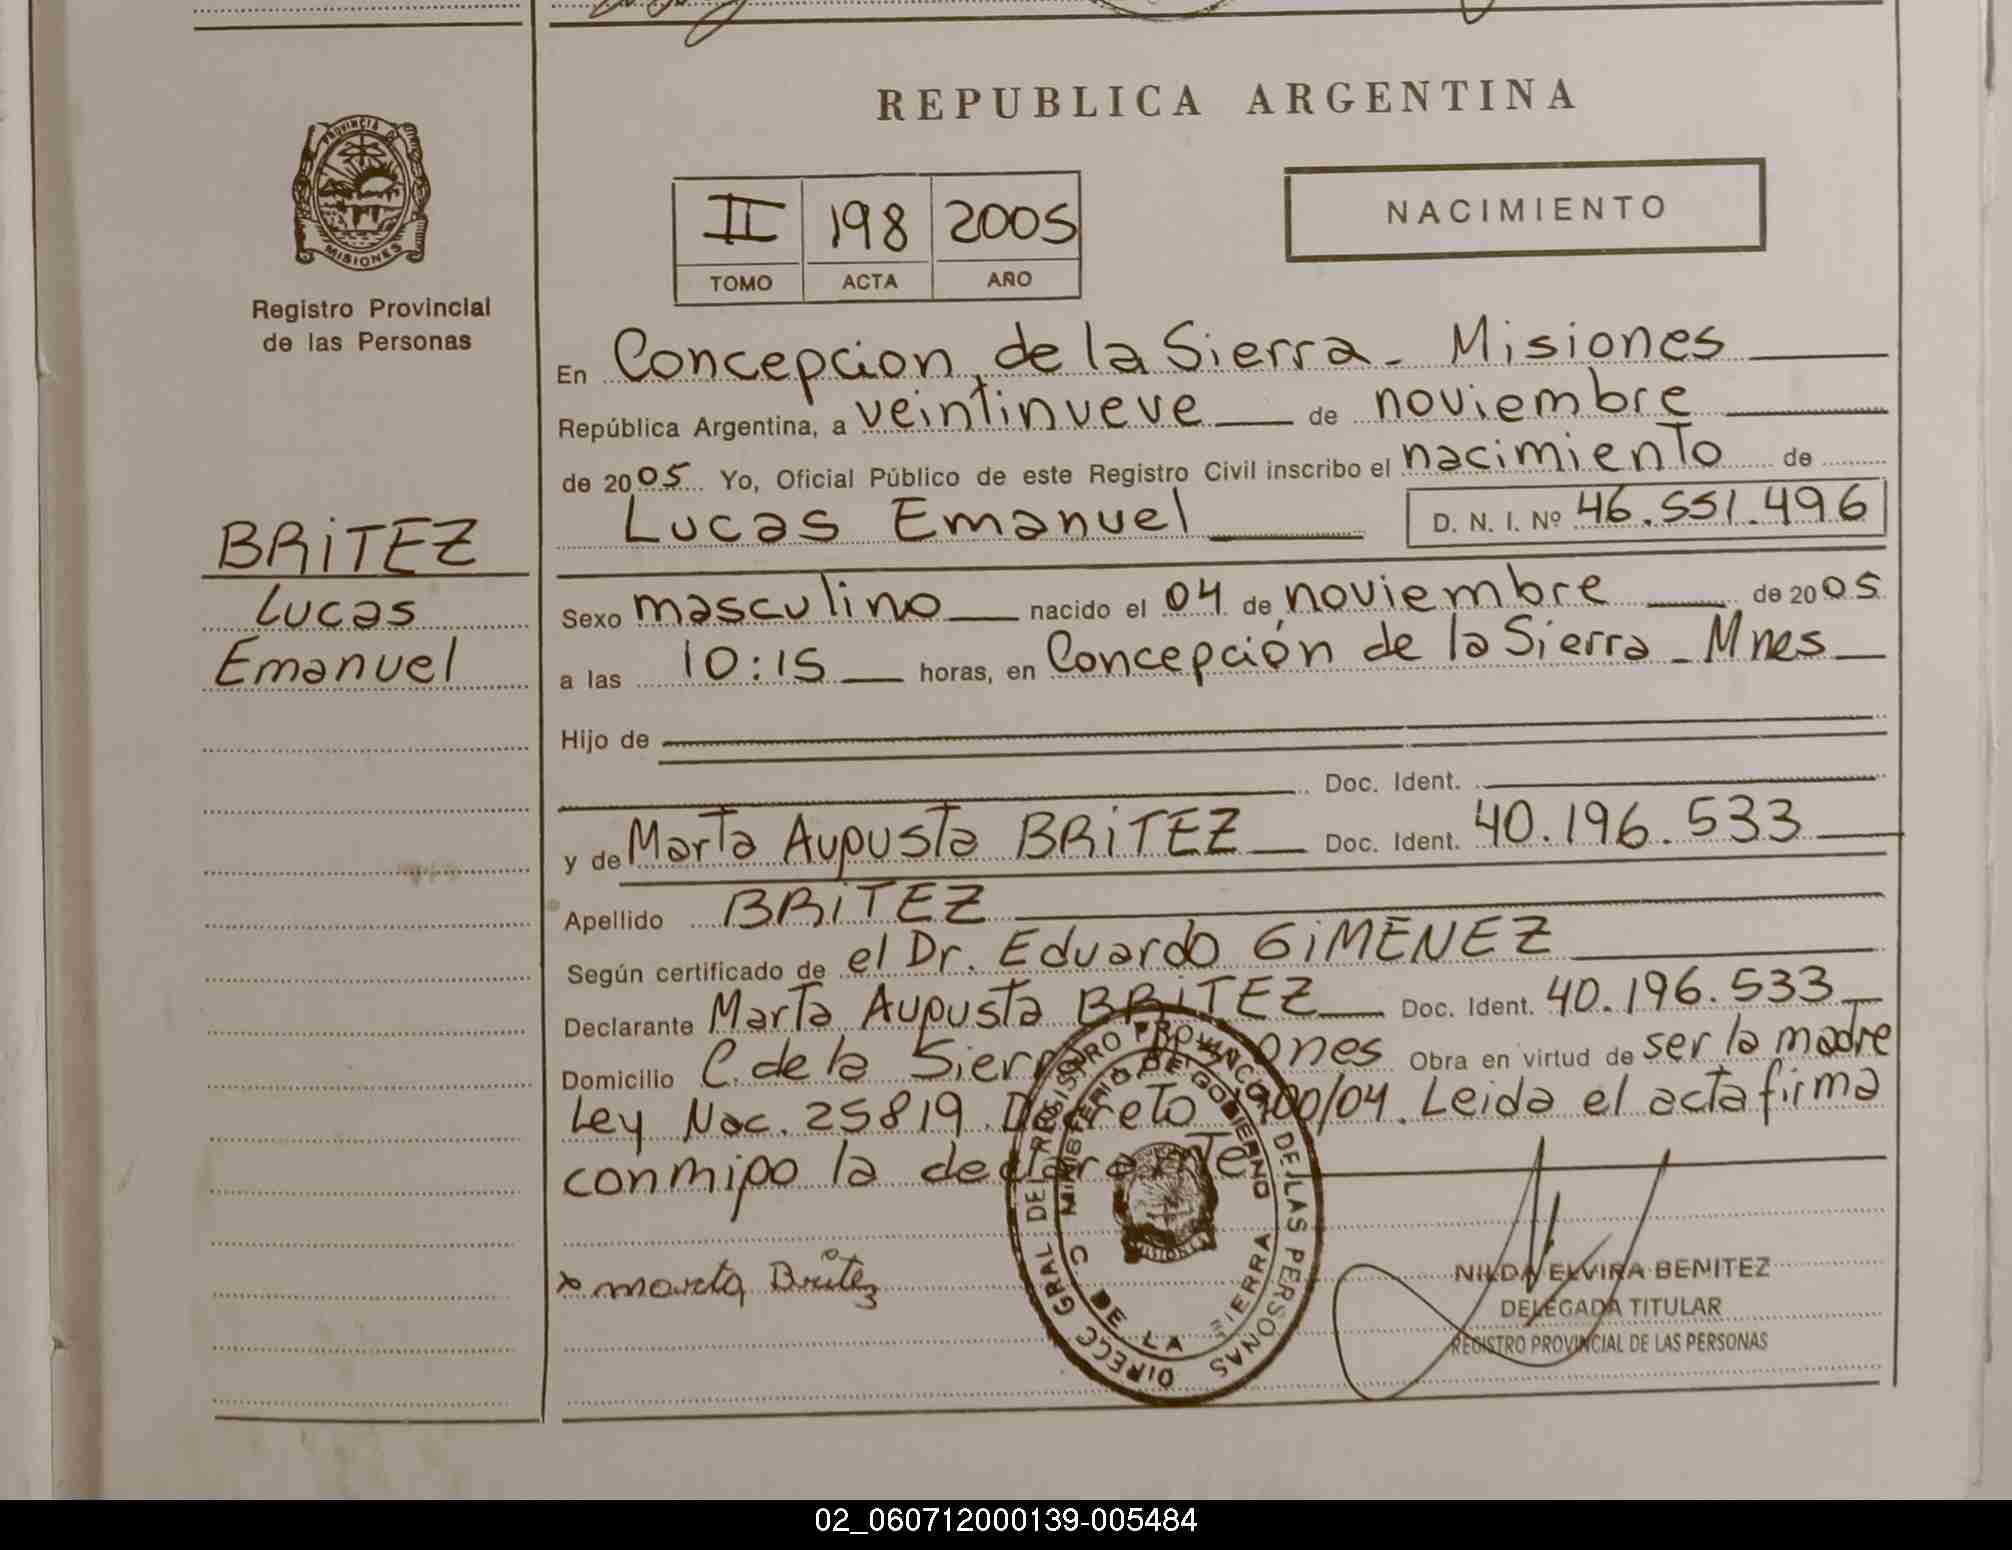 REPUBLICA ARGENTINA
PROVINCIA DE MISIONES
Registro Provincial
de las Personas
II 198 2005
TOMO ACTA AÑO
NACIMIENTO
BRiTEZ
Lucas
Emanuel
En Concepcion de la Sierra - Misiones
República Argentina, a veintinueve de noviembre
de 2005 Yo, Oficial Público de este Registro Civil inscribo el nacimiento de
Lucas Emanuel D. N. I. Nº 46.551.496
Sexo masculino nacido el 04 de noviembre de 2005
a las 10:15 horas, en Concepción de la Sierra - Mnes
Hijo de
Doc. Ident.
y de Marta Augusta BRiTEZ Doc. Ident. 40.196.533
Apellido BRiTEZ
Según certificado de el Dr. Eduardo GiMENEZ
Declarante Marta Augusta BRiTEZ Doc. Ident. 40.196.533
Domicilio C. de la Sierra Misiones Obra en virtud de ser la madre
Ley Nac. 25819 Decreto /04. Leida el acta firma
conmigo la declarante
x marta Britez
DIRECC GRAL DEL REGISTRO PROVINCIAL DE LAS PERSONAS
MINISTERIO DE GOBIERNO
C DE LA SIERRA
NILDA ELVIRA BENITEZ
DELEGADA TITULAR
REGISTRO PROVINCIAL DE LAS PERSONAS
02_060712000139-005484